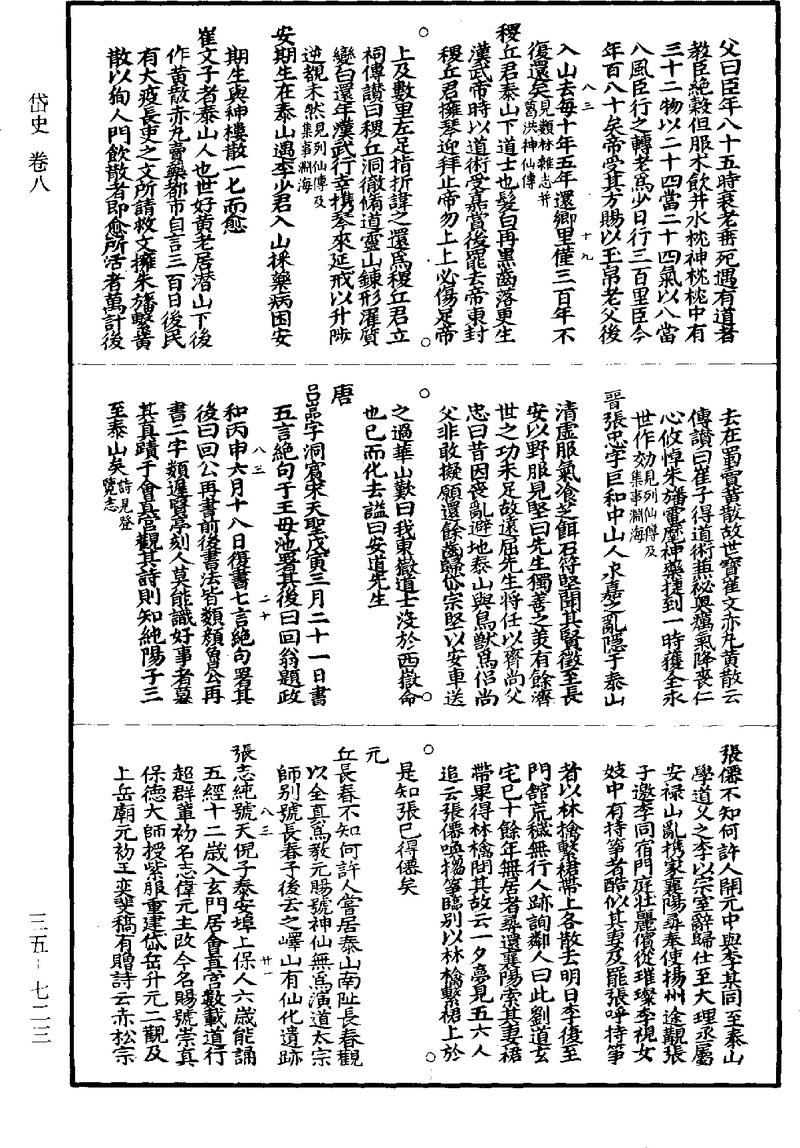 岱史 卷八
父曰臣年八十五時衰老垂死遇有道者
教臣絶穀但服术飲井水枕神枕枕中有
三十二物以二十四當二十四氣以八當
八風臣行之轉老爲少日行三百里臣今
年百八十矣帝受其方賜以玉帛老父後
八三 十九
入山去每十年五年還鄉里僅三百年不
復還矣見類林雜志并葛洪神仙傳
稷丘君泰山下道士也髮白再黑齒落更生
漢武帝時以道術受嘉賞後罷去帝東封
稷丘君擁琴迎拜止帝勿上上必傷足帝
上及數里左足指折諱之還爲稷丘君立
祠傳讚曰稷丘洞徹脩道靈山鍊形濯質
變白還年漢武行幸携琴來延戒以升陟
逆覩未然見列仙傳及集事淵海
安期生在泰山遇李少君入山採藥病困安
期生與神樓散一匕而愈
崔文子者泰山人也世好黃老居潛山下後
作黃散赤丸賣藥都市自言三百日後民
有大疫長吏之文所請救文擁朱旛繫黃
散以狥人門飲散者即愈所活者萬計後
去在蜀賣黃散故世寶崔文赤丸黃散云
傳讚曰崔子得道術兼祕奥癘氣降喪仁
心攸悼朱旛電麾神藥捷到一時獲全永
世作効見列仙傳及集事淵海
晉張忠字巨和中山人永嘉之亂隱于泰山
清虛服氣飡芝餌石苻堅聞其賢徵至長
安以野服見堅曰先生獨善之美有餘濟
世之功未足故遠屈先生將任以齊尚父
忠曰昔因喪亂避地泰山與鳥獸爲侶尚
父非敢擬願還餘齒歸岱宗堅以安車送
之過華山歎曰我東嶽道士没於西嶽命
也已而化去謚曰安道先生
唐
吕嵒字洞賓宋天聖戊寅三月二十一日書
五言絶句于王母池署其後曰回翁題政
八三 二十
和丙申六月十八日復書七言絶句署其
後曰回公再書前後書法皆類顔魯公再
書二字頗遲覽亭刻人莫能識好事者摹
其真蹟于會真宫觀其詩則知純陽子三
至泰山矣詩見登覽志
張僊不知何許人開元中與李某同至泰山
學道义之李以宗室辭歸仕至大理丞屬
安禄山亂携家襄陽尋奉使揚州途覯張
子邀李同宿門庭壯麗儐從璀璨李視女
妓中有持箏者酷似其妻及罷張呼持箏
者以林檎繫裙帶上各散去明日李復至
門舘荒穢無行人跡詢鄰人曰此劉道玄
宅已十餘年無居者尋還襄陽索其妻裙
帶果得林檎問其故云一夕夢見五六人
追云張僊喚搊箏臨別以林檎繫裙上於
是知張已得僊矣
元
丘長春不知何許人嘗居泰山南趾長春觀
以全真爲教元賜號神仙無爲演道太宗
師别號長春子後去之嶧山有仙化遺跡
八三 廿一
張志純號天倪子泰安埠上保人六歲能誦
五經十二歲入玄門居會真宫數載道行
超群軰初名志偉元主改今名賜號崇真
保德大師授紫服重建岱岳升元二觀及
上岳廟元初王奕斐稿有贈詩云赤松宗
三五-七二三